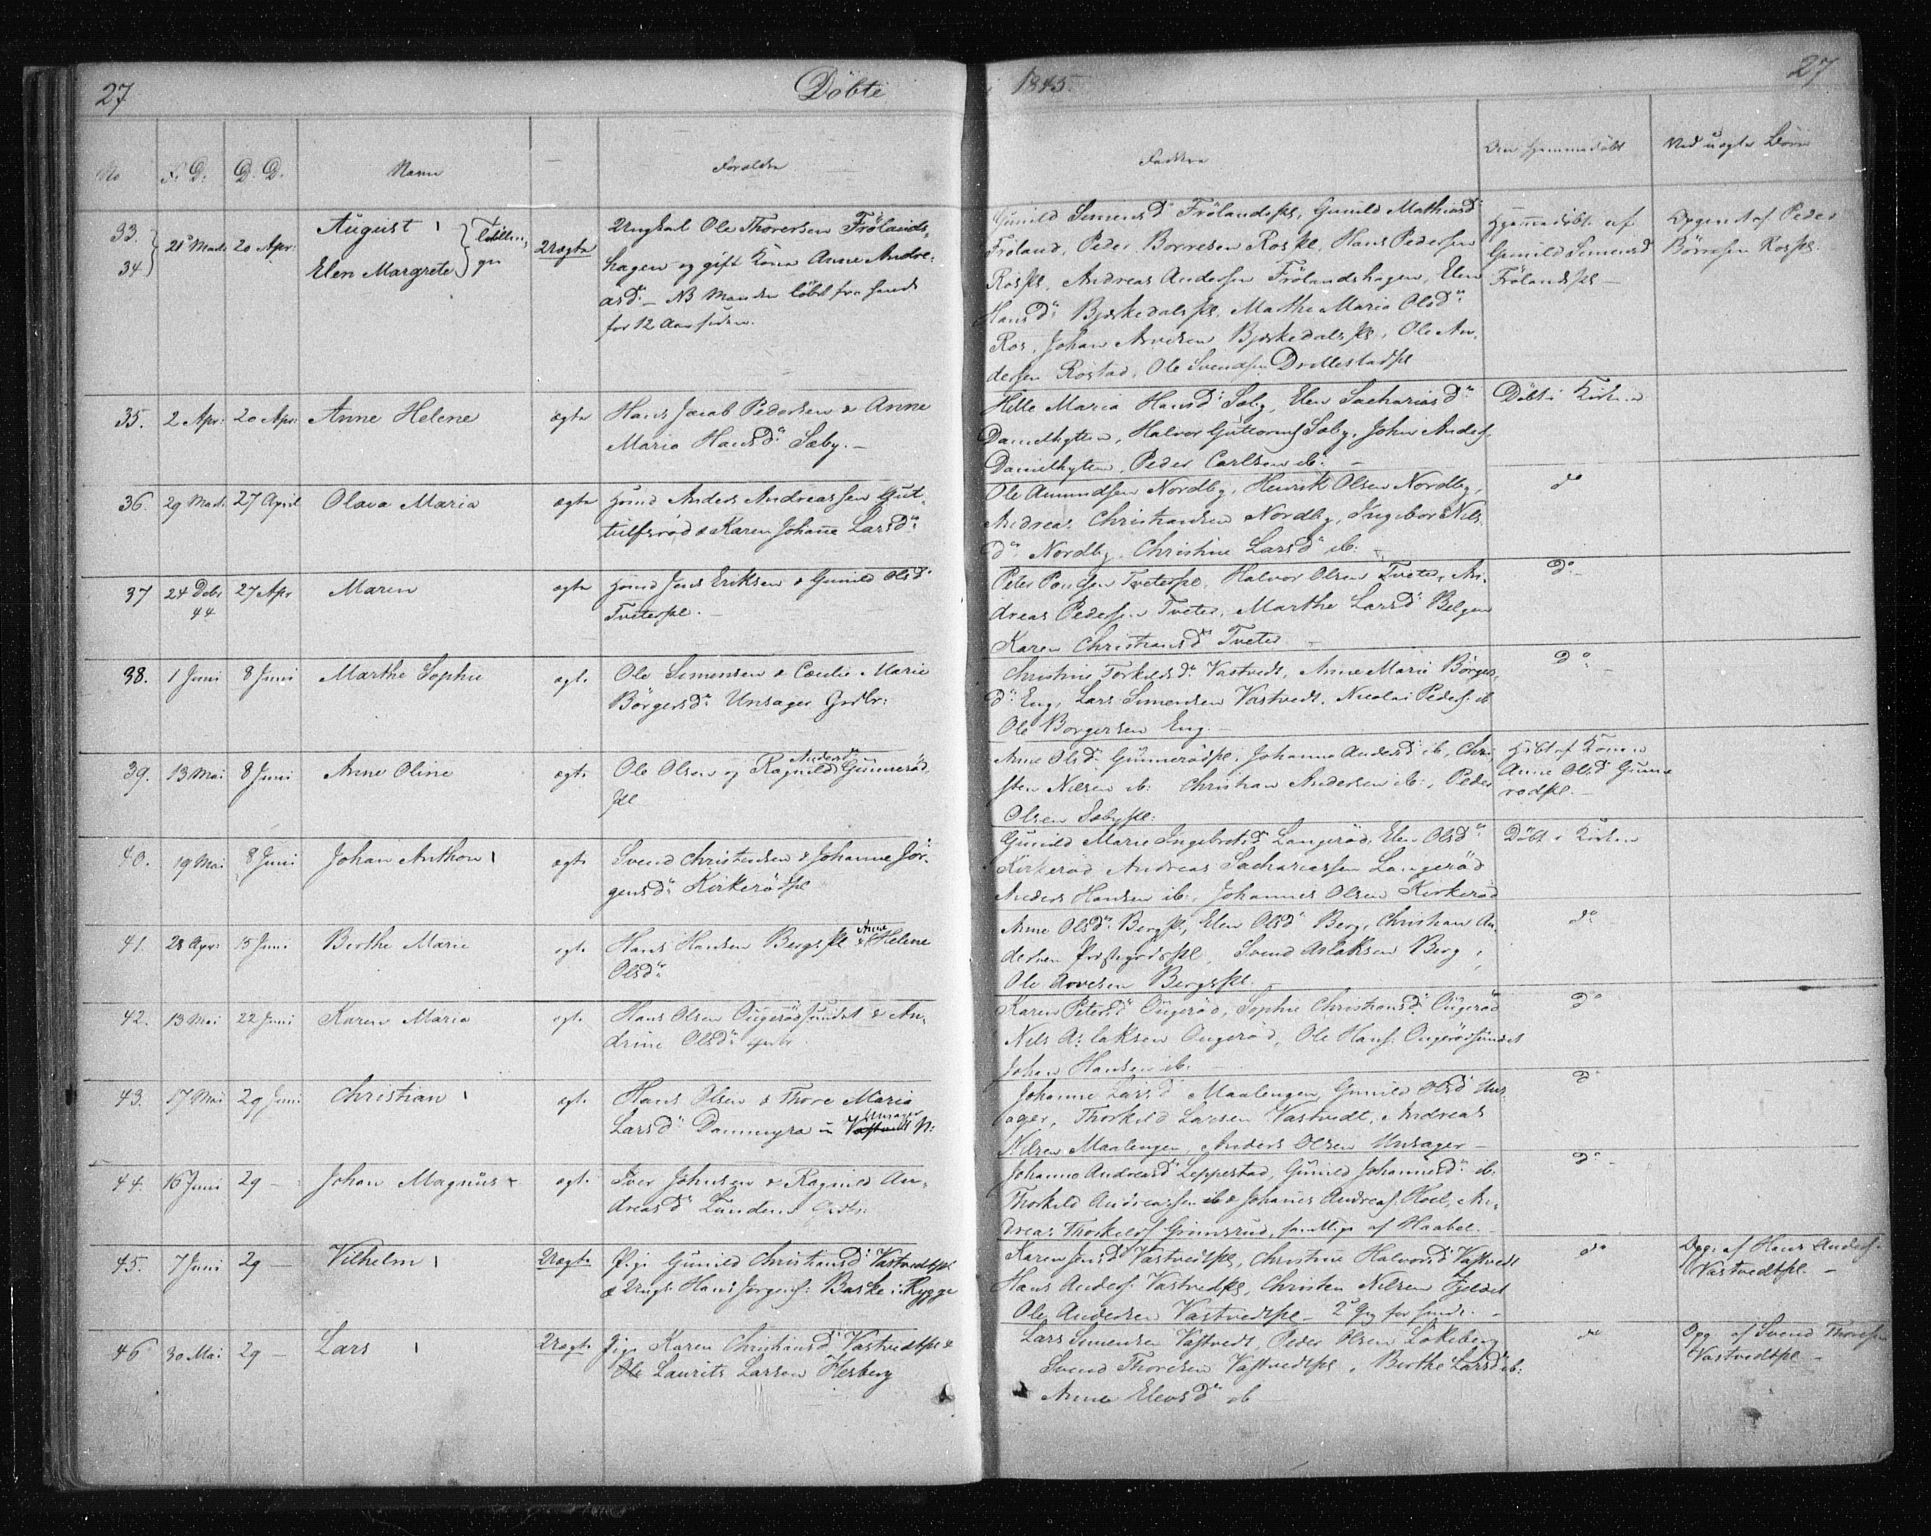 27 Döbte 1845. 27
No F. D: D. D. Navn Forældre Faddere Om Hjemmedöbt Ved uægte Börn
33. 34 21 Marts 20 Apr: August Elen Margrete } Tvillinger Uægte
Ungkal Ole Thoresen Frölands-
hagen og gift Kone Anne Andre-
asd. – NB Manden löbet fra hende
for 12 Aar siden.
Gunild Simensd Frölandspl, Gunild Mathiasd
Fröland, Peder Borresen Rospl, Hans Pedersen
Rospl, Andreas Andersen Frölandshagen, Elen
Hansd. Bjerkedalspl, Mathe Maria Olsd.
Ros, Johan Arvesen Bjerkedalspl, Ole An-
dersen Rostad, Ole Svendsen Drillestadpl
Hjemmedöbt af
Gunild Simensd
Frölandspl –
Opgivet af Peder
Börresen Rospl
35. 2 Apr: 20 Apr: Anne Helene ægte
Hans Jacob Pedersen & Anne
Maria Hansd. Sæby. –
Helle Maria Hansd. Sæby, Elen Sachariasd.
Danielhytten, Halvor Guttormss Sæby, John Anders.
Danielhytten, Peder Carlsen ib: –
Döbt i Kirken
36. 29 Marts 27 April Olava Maria ægte
Huusd Anders Andreassen Gut-
tulfsröd & Karen Johañe Larsd.
Ole Amundsen Nordby, Henrik Olsen Nordby,
Andreas Christiansen Nordby, Ingebor Nils-
d. Nordby, Christine Larsd ib:
do
37 24 Debr 44 27 Apr Maren ægte
Huusd Jens Eriksen & Gunild Olsd
Tveterpl. –
Peter Poulsen Tveterpl, Halvor Olsen Tveter, An-
dreas Pedersen Tveter, Marthe Larsd Belgen
Karen Christiansd Tveter –
Do
38. 1 Juni 8 Juni Marthe Sophie ægt.
Ole Simensen & Cæcilie Marie
Börgersd. Unsager Grdbr:
Christine Torkildsd. Vastvedt, Anne Marie Börgers-
d. Eng, Lars Simensen Vastvedt, Nicolai Peders. ib
Ole Borgersen Eng. –
Do
39. 13 Mai 8 Juni Anne Oline ægt.
Ole Olsen og Ragnild Andersd Gunneröd
pl
Anne Olsd. Gunnerödpl, Johanne Andersd ib, Chri-
sten Nilsen ib: Christian Andersen ib:, Peder
Olsen Sæbypl:
Hjdbt af Konen
Anne Olsd Gunne
rødpl. –
40. 19 Mai 8 Juni Johan Anthon ægt.
Svend Christensen & Johanne Jör-
gensd. Kirkerödpl
Gunild Marie Ingebretsd Langeröd, Elen Olsd.
Kirkeröd Andreas Sachariassen Langeröd
Anders Hansen ib:, Johannes Olsen Kirkeröd
Döbt i Kirken
41. 28 Apr: 15 Juni Berthe Marie ægt.
Hans Hansen Bergspl & Anne Helene
Olsd.
Anne Olsd. Bergpl, Elen Olsd Berg, Christian An-
dersen Prestegrdspl, Svend Aslaksen Berg,
Ole Arvesen Bergspl. –
do
42. 13 Mai 22 Juni Karen Maria ægt.
Hans Olsen Ougerödsundet & An-
drine Olsd.
Karen Petersd Ougeröd, Sophie Christiansd. Ougeröd
Nils Aslaksen Ougeröd, Ole Hans. Ougerödsundet
Johan Hansen ib: –
Do
43. 17 Mai 29 Juni Christian ægt.
Hans Olsen & Thore Maria
Larsd Dammyra u Vastvedt Unsager N:
Johanne Larsd Maalengen, Gunild Olsd Uns-
ager, Thorkild Larsen Vastvedt, Andreas
Nilsen Maalengen, Anders Olsen Unsager –
Do
44. 16 Juni 29 – Johan Magnus ægt.
Iver Johnsen & Ragnild An-
dreasd Lunden
Johanne Andreasd Leppestad, Gunild Johannesd. ib
Thorkild Andreassen ib & Johanes Andreas. Hoel, An-
dreas Thorkelds. Grimsrud, samtlige af Haabol. –
Do
45. 7 Juni 29 – Vilhelm Uægt.
Pige Gunild Christiansd Vastvedtpl
& Ungk Hans Jörgens: Baske i Rygge
Karen Jensd Vastvedtpl, Christine Halvorsd Vastvedt
Hans Anders. Vastvedtpl, Christen Nilsen Fjeldet
Ole Andersen Vastvedtpl – 2d Gg for hende. –
do
Opg: af Hans Anders.
Vastvedtpl –
46 30 Mai 29 – Lars Uægt.
Pige Karen Christiansd Vastvedtpl &
Ole Laurits Larsen Hesberg
Lars Simensen Vastvedt, Peder Olsen Lokeberg
Svend Thoresen Vastvedtpl, Berthe Larsd ib:
Anne Elevsd ib –
do
Opg af Svend Thoresen
Vastvedtpl –